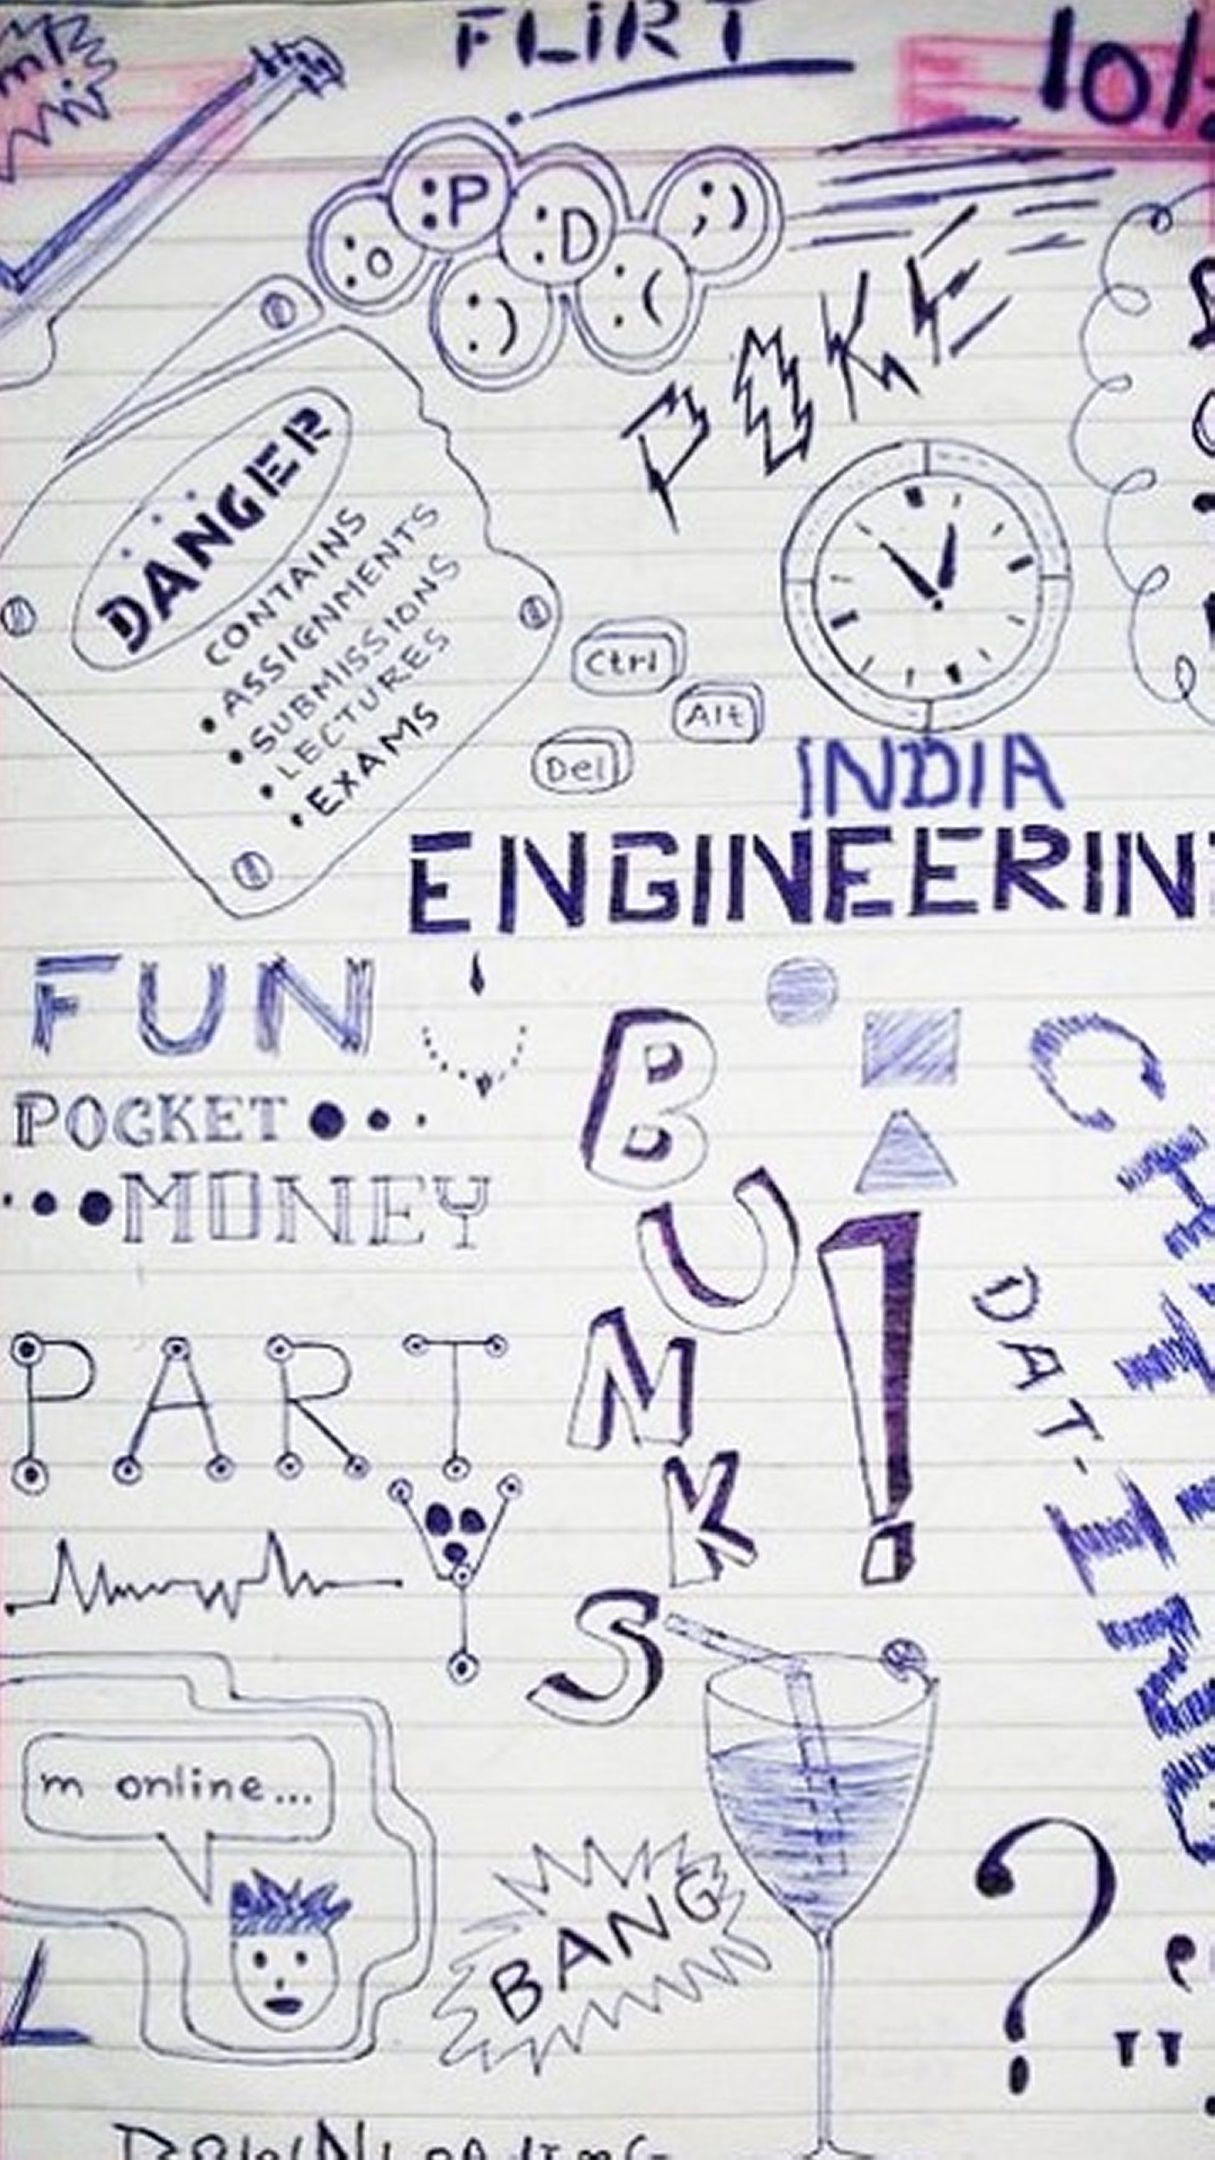 FLiRT
10/
:o :P :D ;)
:) :(
POKE
DANGER
CONTAINS
• ASSIGNMENTS
• SUBMISSIONS
• LECTURES
• EXAMS
Ctrl
Alt
Del
INDIA
ENGINEERIN
FUN
POCKET
MONEY
BUNKS!
DAT-
PARTY
m online...
BANG
?
L
DOWNLOADING